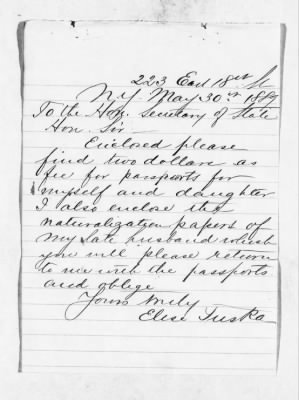 223 East 18th St
N.Y. May 30th 1889
To the Hon. Secretary of State
Hon. Sir -
Enclosed please
find two dollars as
fee for passports for
myself and daughter
I also enclose the
naturalization papers of
my late husband which
you will please return
to me with the passports
and oblige
Yours truly
Elise Tuska